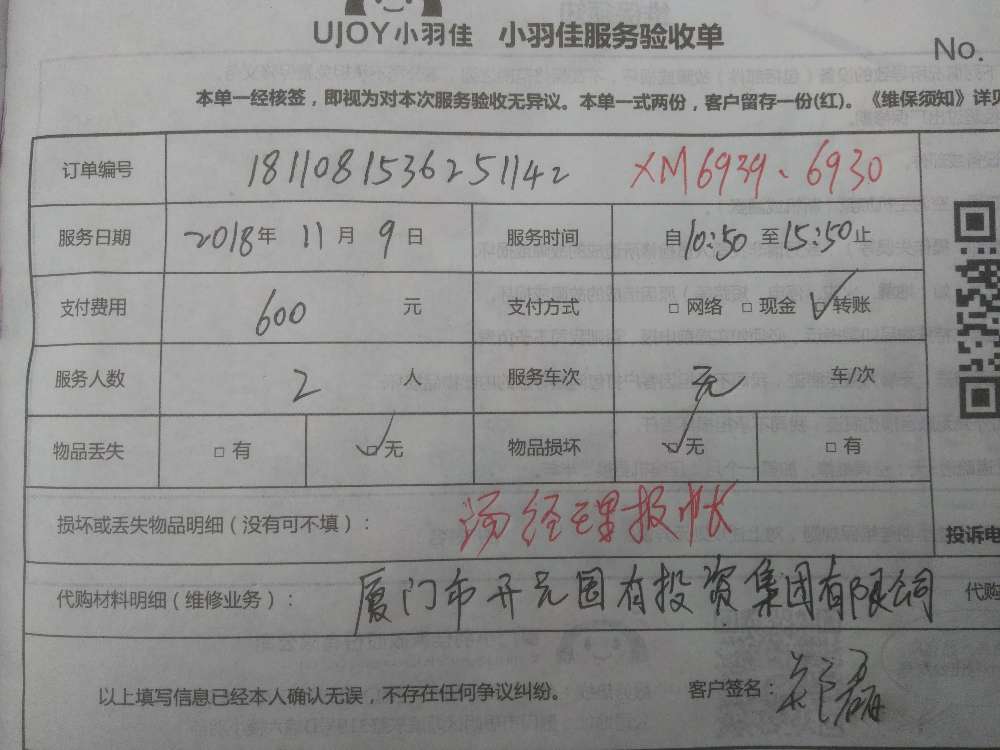 UJOY小羽佳 小羽佳服务验收单
No.
本单一经核签，即视为对本次服务验收无异议。本单一式两份，客户留存一份(红)。《维保须知》详见
订单编号 1811081536251142 XM6939、6930
服务日期 2018年 11月 9日 服务时间 自10:50至15:50止
支付费用 600 元 支付方式 □ 网络 □ 现金 ☑ 转账
服务人数 2 人 服务车次 无 车/次
物品丢失 □ 有 ☑ 无 物品损坏 ☑ 无 □ 有
损坏或丢失物品明细（没有可不填）： 汤经理报帐
投诉电
代购材料明细（维修业务）： 厦门市开元国有投资集团有限公司 代购
以上填写信息已经本人确认无误，不存在任何争议纠纷。 客户签名：